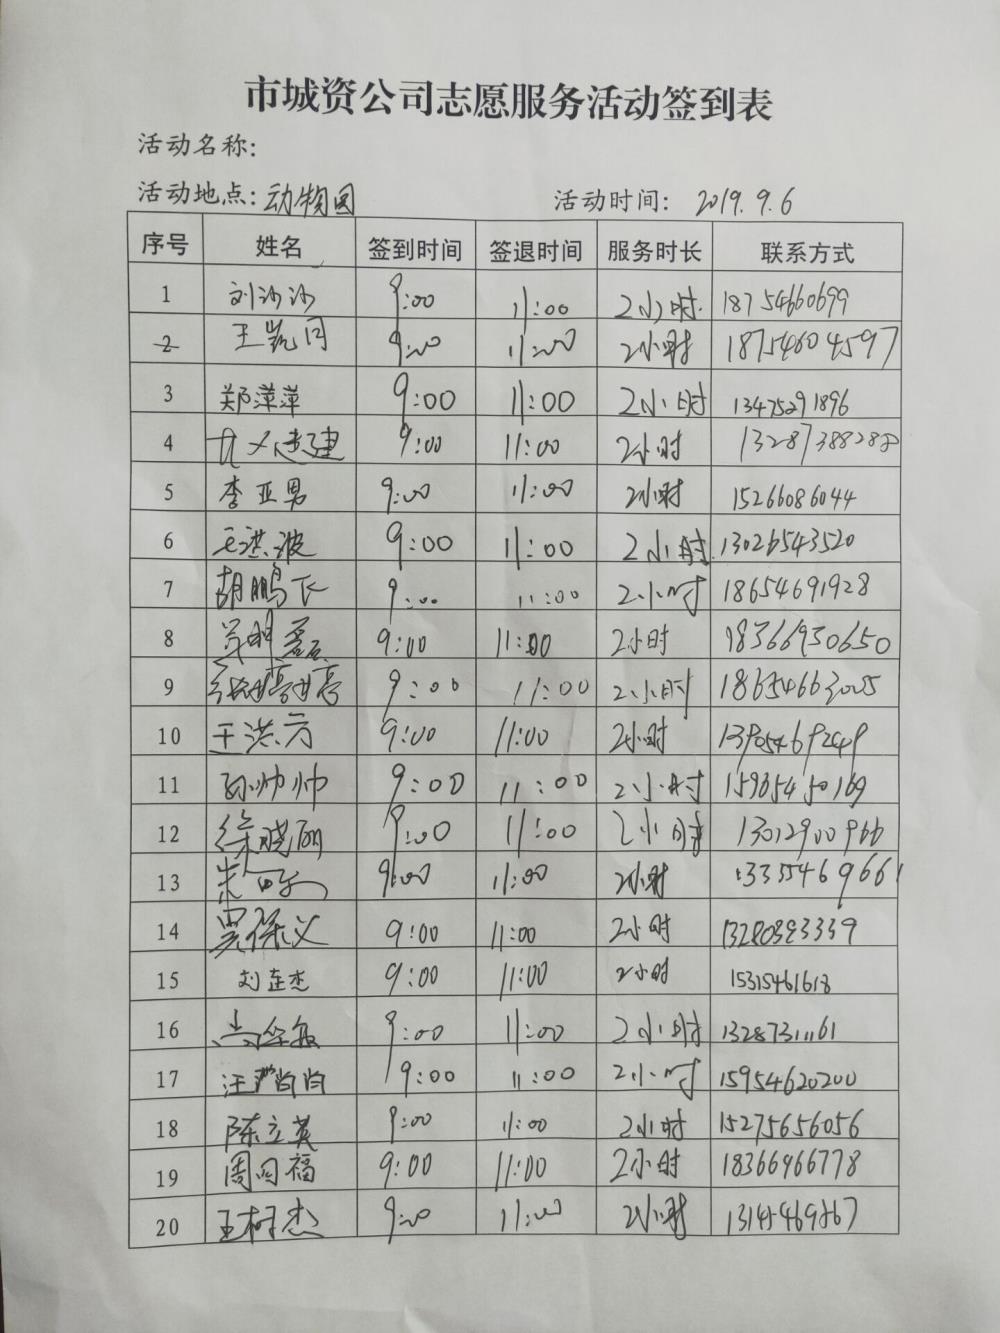 市城资公司志愿服务活动签到表
活动名称:
活动地点: 动物园 活动时间: 2019.9.6
序号 姓名 签到时间 签退时间 服务时长 联系方式
1 刘沙沙 9:00 11:00 2小时 18754660699
2 王凯同 9:00 11:00 2小时 18754604597
3 郑萍萍 9:00 11:00 2小时 13475291896
4 9:00 11:00 2小时
5 李亚男 9:00 11:00 2小时 15266086044
6 王洪波 9:00 11:00 2小时 13026543520
7 胡鹏飞 9:00 11:00 2小时 18654691928
8 9:00 11:00 2小时 18366930650
9 9:00 11:00 2小时
10 王洪方 9:00 11:00 2小时
11 孙帅帅 9:00 11:00 2小时
12 徐晓丽 9:00 11:00 2小时 13012900966
13 9:00 11:00 2小时 13355469661
14 贾保义 9:00 11:00 2小时
15 刘连杰 9:00 11:00 2小时 15315461618
16 9:00 11:00 2小时
17 汪 9:00 11:00 2小时 15954620200
18 陈立英 9:00 11:00 2小时 15275656056
19 周向福 9:00 11:00 2小时 18366966778
20 王树杰 9:00 11:00 2小时